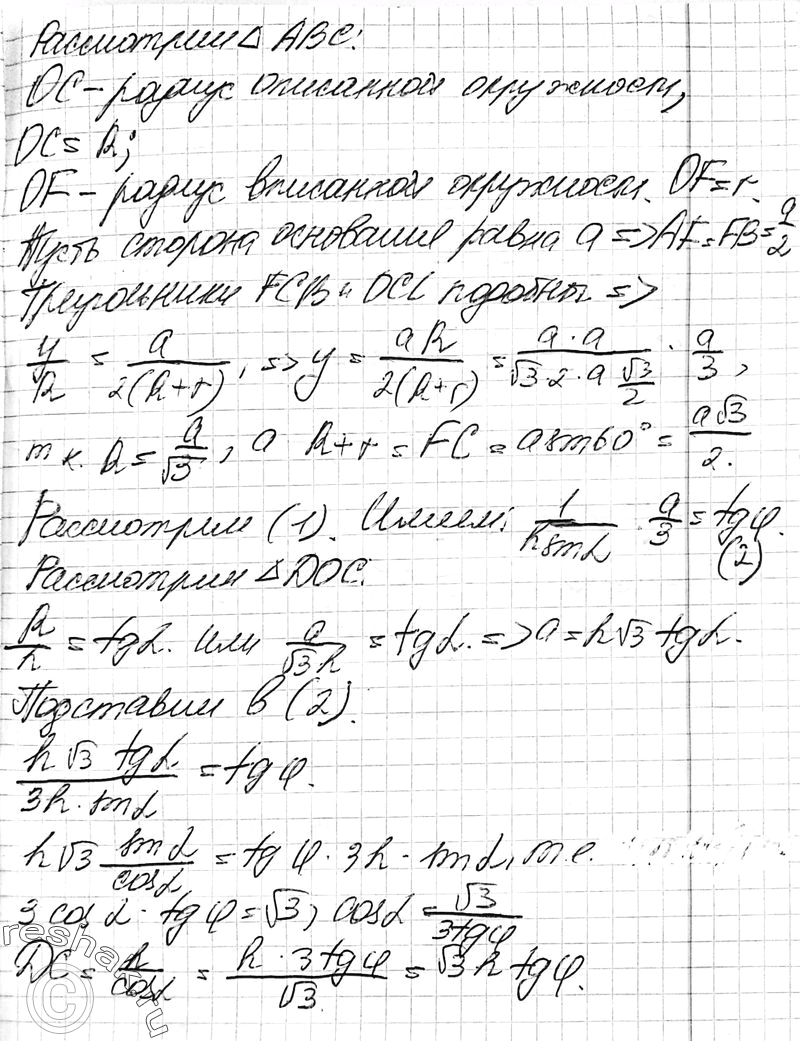 Рассмотрим △ ABC:
OC – радиус описанной окружности,
OC = R;
OF – радиус вписанной окружности. OF = r.
Пусть сторона основания равна a => AF = FB = a/2
Треугольники FCB и OCL подобны =>
y/R = a/(2(R+r)), => y = aR/(2(R+r)) = (a·a)/(√3·2·a √3/2) · a/3,
т.к. R = a/√3, а R+r = FC = a sin60° = a√3/2.
Рассмотрим (1). Имеем: 1/(h sinα) · a/3 = tgφ. (2)
Рассмотрим △DOC:
R/h = tgα. Или a/(√3h) = tgα. => a = h√3 tgα.
Подставим в (2).
(h√3 tgα)/(3h·sinα) = tgφ.
h√3 sinα/cosα = tgφ·3h·sinα, т.е.
3cosα·tgφ = √3, cosα = √3/(3tgφ)
DC = h/cosα = (h·3tgφ)/√3 = √3 h tgφ.
reshak.ru
©